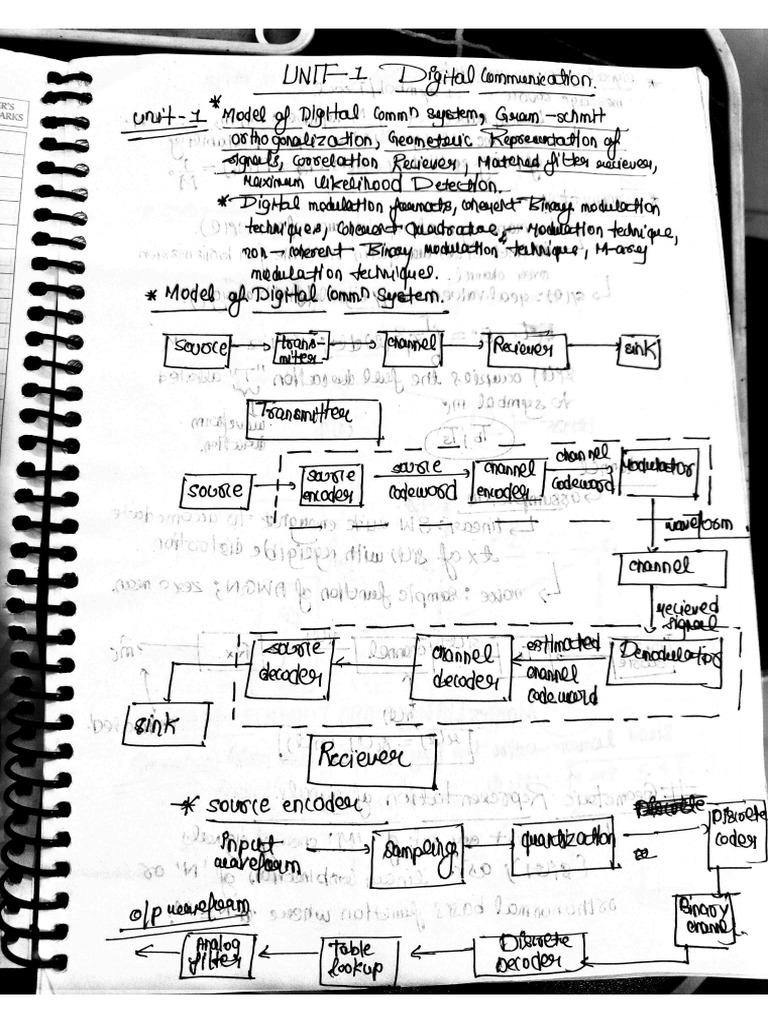 UNIT-1 Digital Communication.
Unit-1 * Model of Digital Commⁿ system, Gram-schmit
orthogonalization, Geometeric Representation of
signals, Correlation Reciever, Matched filter reciever,
Maximum likelihood Detection.
* Digital modulation formats, coherent Binary modulation
techniques, Coherent Quadrature - Modulation technique,
non-coherent Binary modulation technique, M-array
modulation techniques.
* Model of Digital Commⁿ System.
source
trans-
mitter
channel
Reciever
sink
Transmitter
source
source
encoder
source
codeword
channel
encoder
channel
codeword
Modulator
waveform
channel
recieved
signal
Demodulator
estimated
channel
codeword
channel
decoder
source
decoder
sink
Reciever
* source encoder
Input
waveform
sampling
quantization
Discrete
coder
Binary
channel
Discrete
Decoder
Table
lookup
Analog
filter
o/p waveform